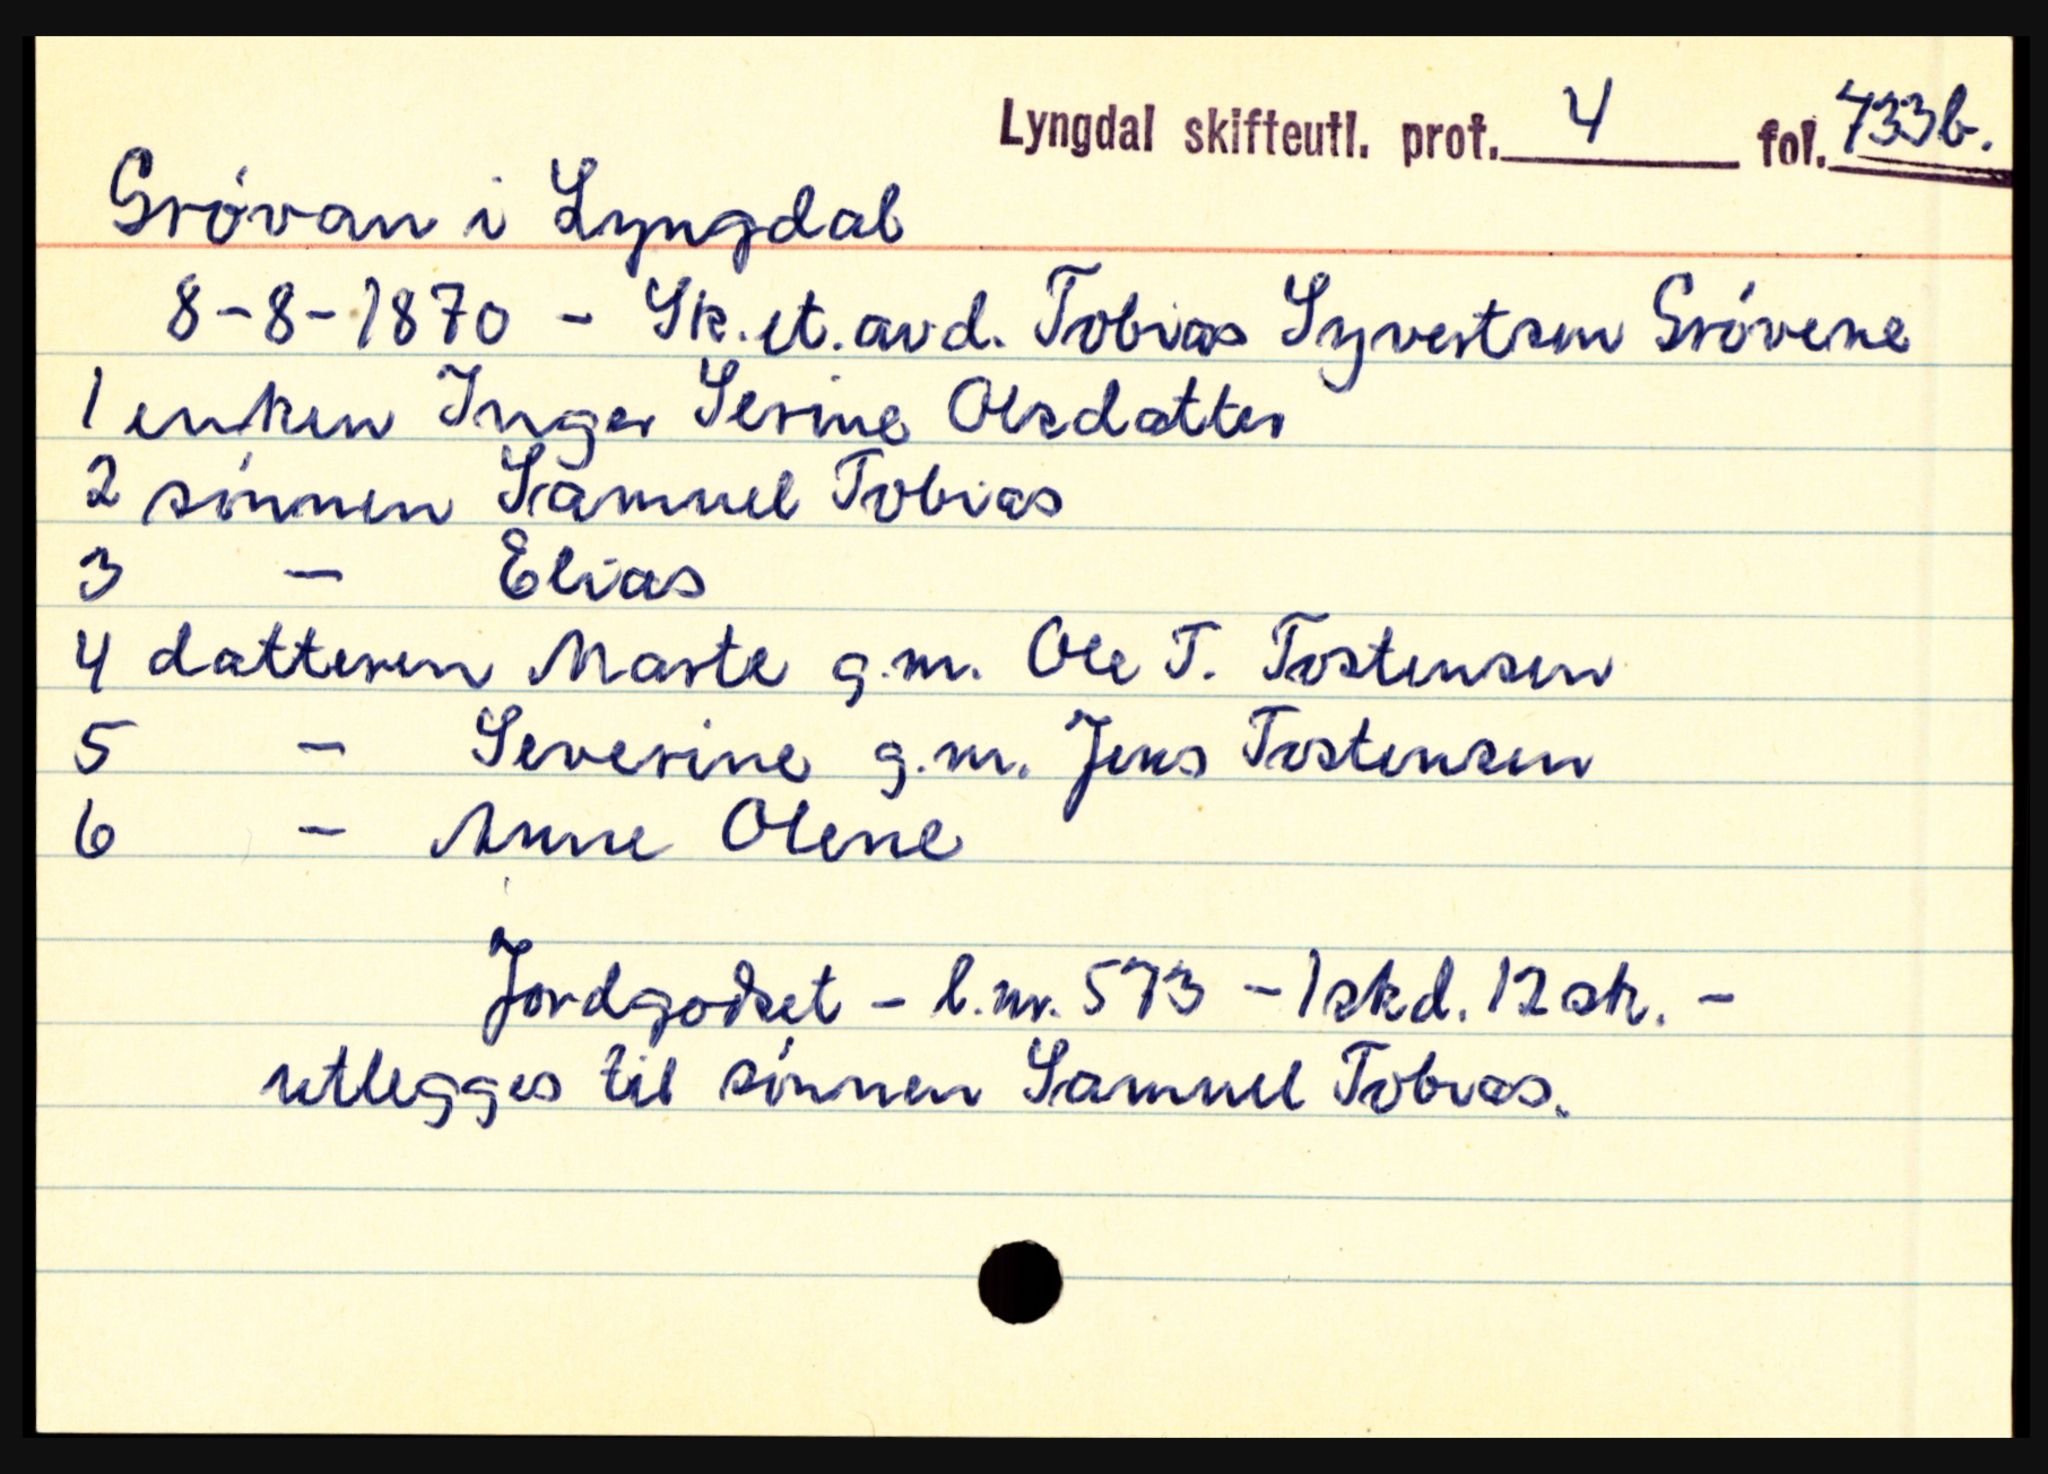 Lyngdal skifteutl. prot. 4 fol. 433b.
Grøvan i Lyngdal
8-8-1870 - Sk. et. avd. Tobias Syvertsen Grøvene
1 enken Inger Serine Olsdatter
2 sønnen Samuel Tobias
3 - Elias
4 datteren Marte g.m. Ole T. Tostensen
5 - Severine g.m. Jens Tostensen
6 - Anne Olene
Jordgodset - l.nr. 573 - 1 skd. 12 sk. -
utlegges til sønnen Samuel Tobias.